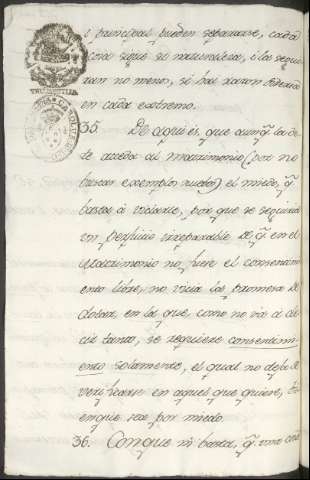 s principal pueden separarse, cada
cosa sigue su naturaleza, i las seque
en cada extremo.
35. De aqui es, que aunq.e la de
te acceda al matrimonio (por no
buscar exemplos nuebos) el miedo, q.e
basta à viciarle, por que se seguiria
un perjuicio irreparable de q.e en el
Matrimonio no fuere el consentimi
ento libre, no vicia la promesa de
dotar, en la que, como no và à de
cir tanto, se requiere consentimi
ento solamente, el qual no deja de
verificarse en aquel que quiere, bi
en que sea por miedo.
36. Conque ni basta, q.e uno